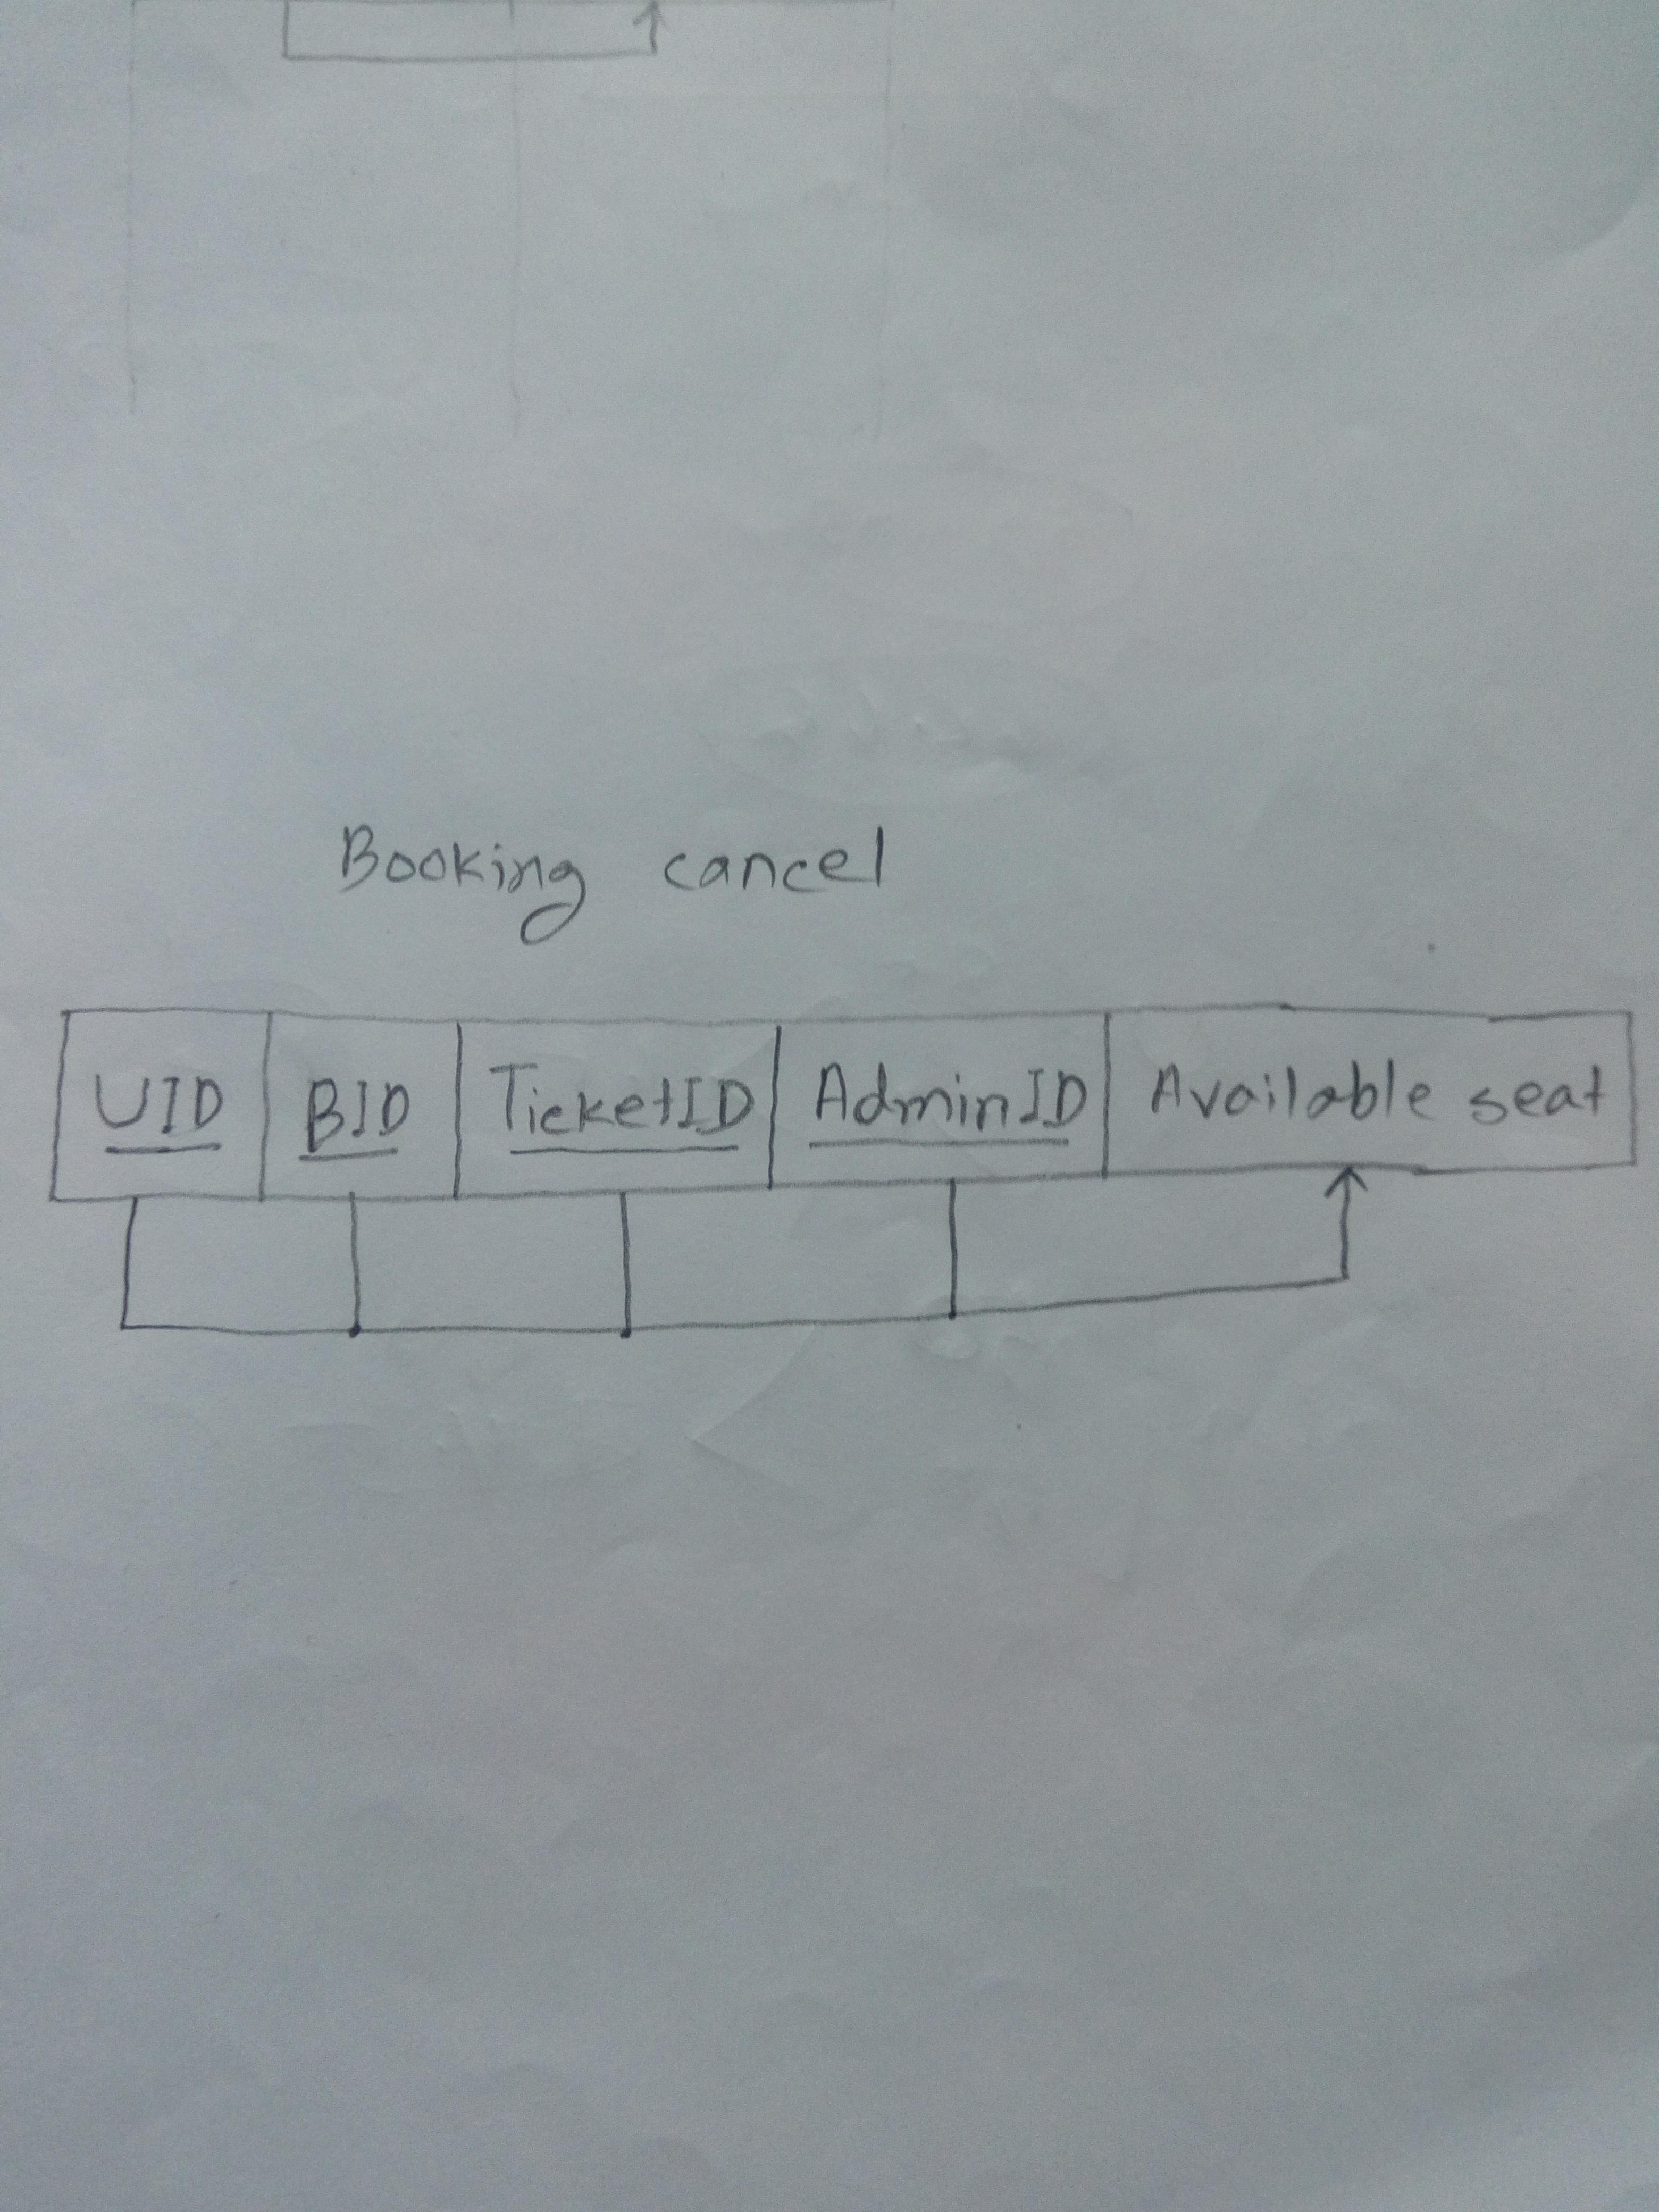 Booking cancel
UID BID TicketID AdminID Available seat